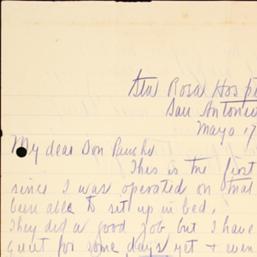 Sta Rosa Hosp
San Antonio
Mayo 17
My dear Don
This is the first
since I was operated on that
been able to sit up in bed.
They did a good job but I have
quiet for some days yet + even